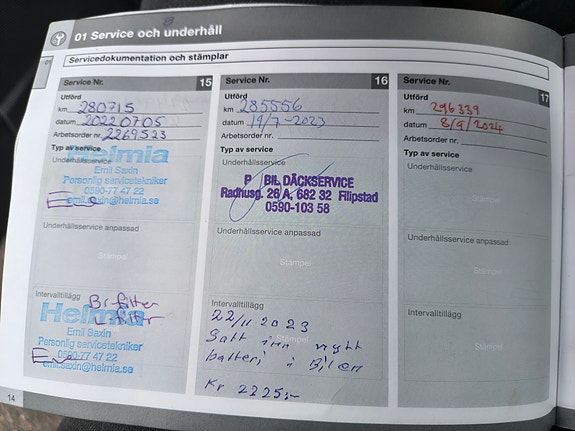 01 Service och underhåll
Servicedokumentation och stämplar
01
Service Nr. 15
Utförd
km 280715
datum 20220705
Arbetsorder nr. 2269523
Typ av service
Underhållsservice
Helmia
Emil Saxin
Personlig servicetekniker
0590-77 47 22
emil.saxin@helmia.se
Underhållsservice anpassad
Stämpel
Intervalltillägg
Br filter
Helmia
Emil Saxin
Personlig servicetekniker
0590-77 47 22
emil.saxin@helmia.se
Service Nr. 16
Utförd
km 285556
datum 19/7-2023
Arbetsorder nr.
Typ av service
Underhållsservice
BIL DÄCKSERVICE
Radhusg. 26 A, 682 32 Filipstad
0590-103 58
Underhållsservice anpassad
Stämpel
Intervalltillägg
22/11 2023
Satt inn nytt
Stämpel
batteri i Bilen
Kr 2225:-
Service Nr. 17
Utförd
km 296339
datum 8/9/2024
Arbetsorder nr.
Typ av service
Underhållsservice
Underhållsservice anpassad
Stämpel
Intervalltillägg
Stämpel
14